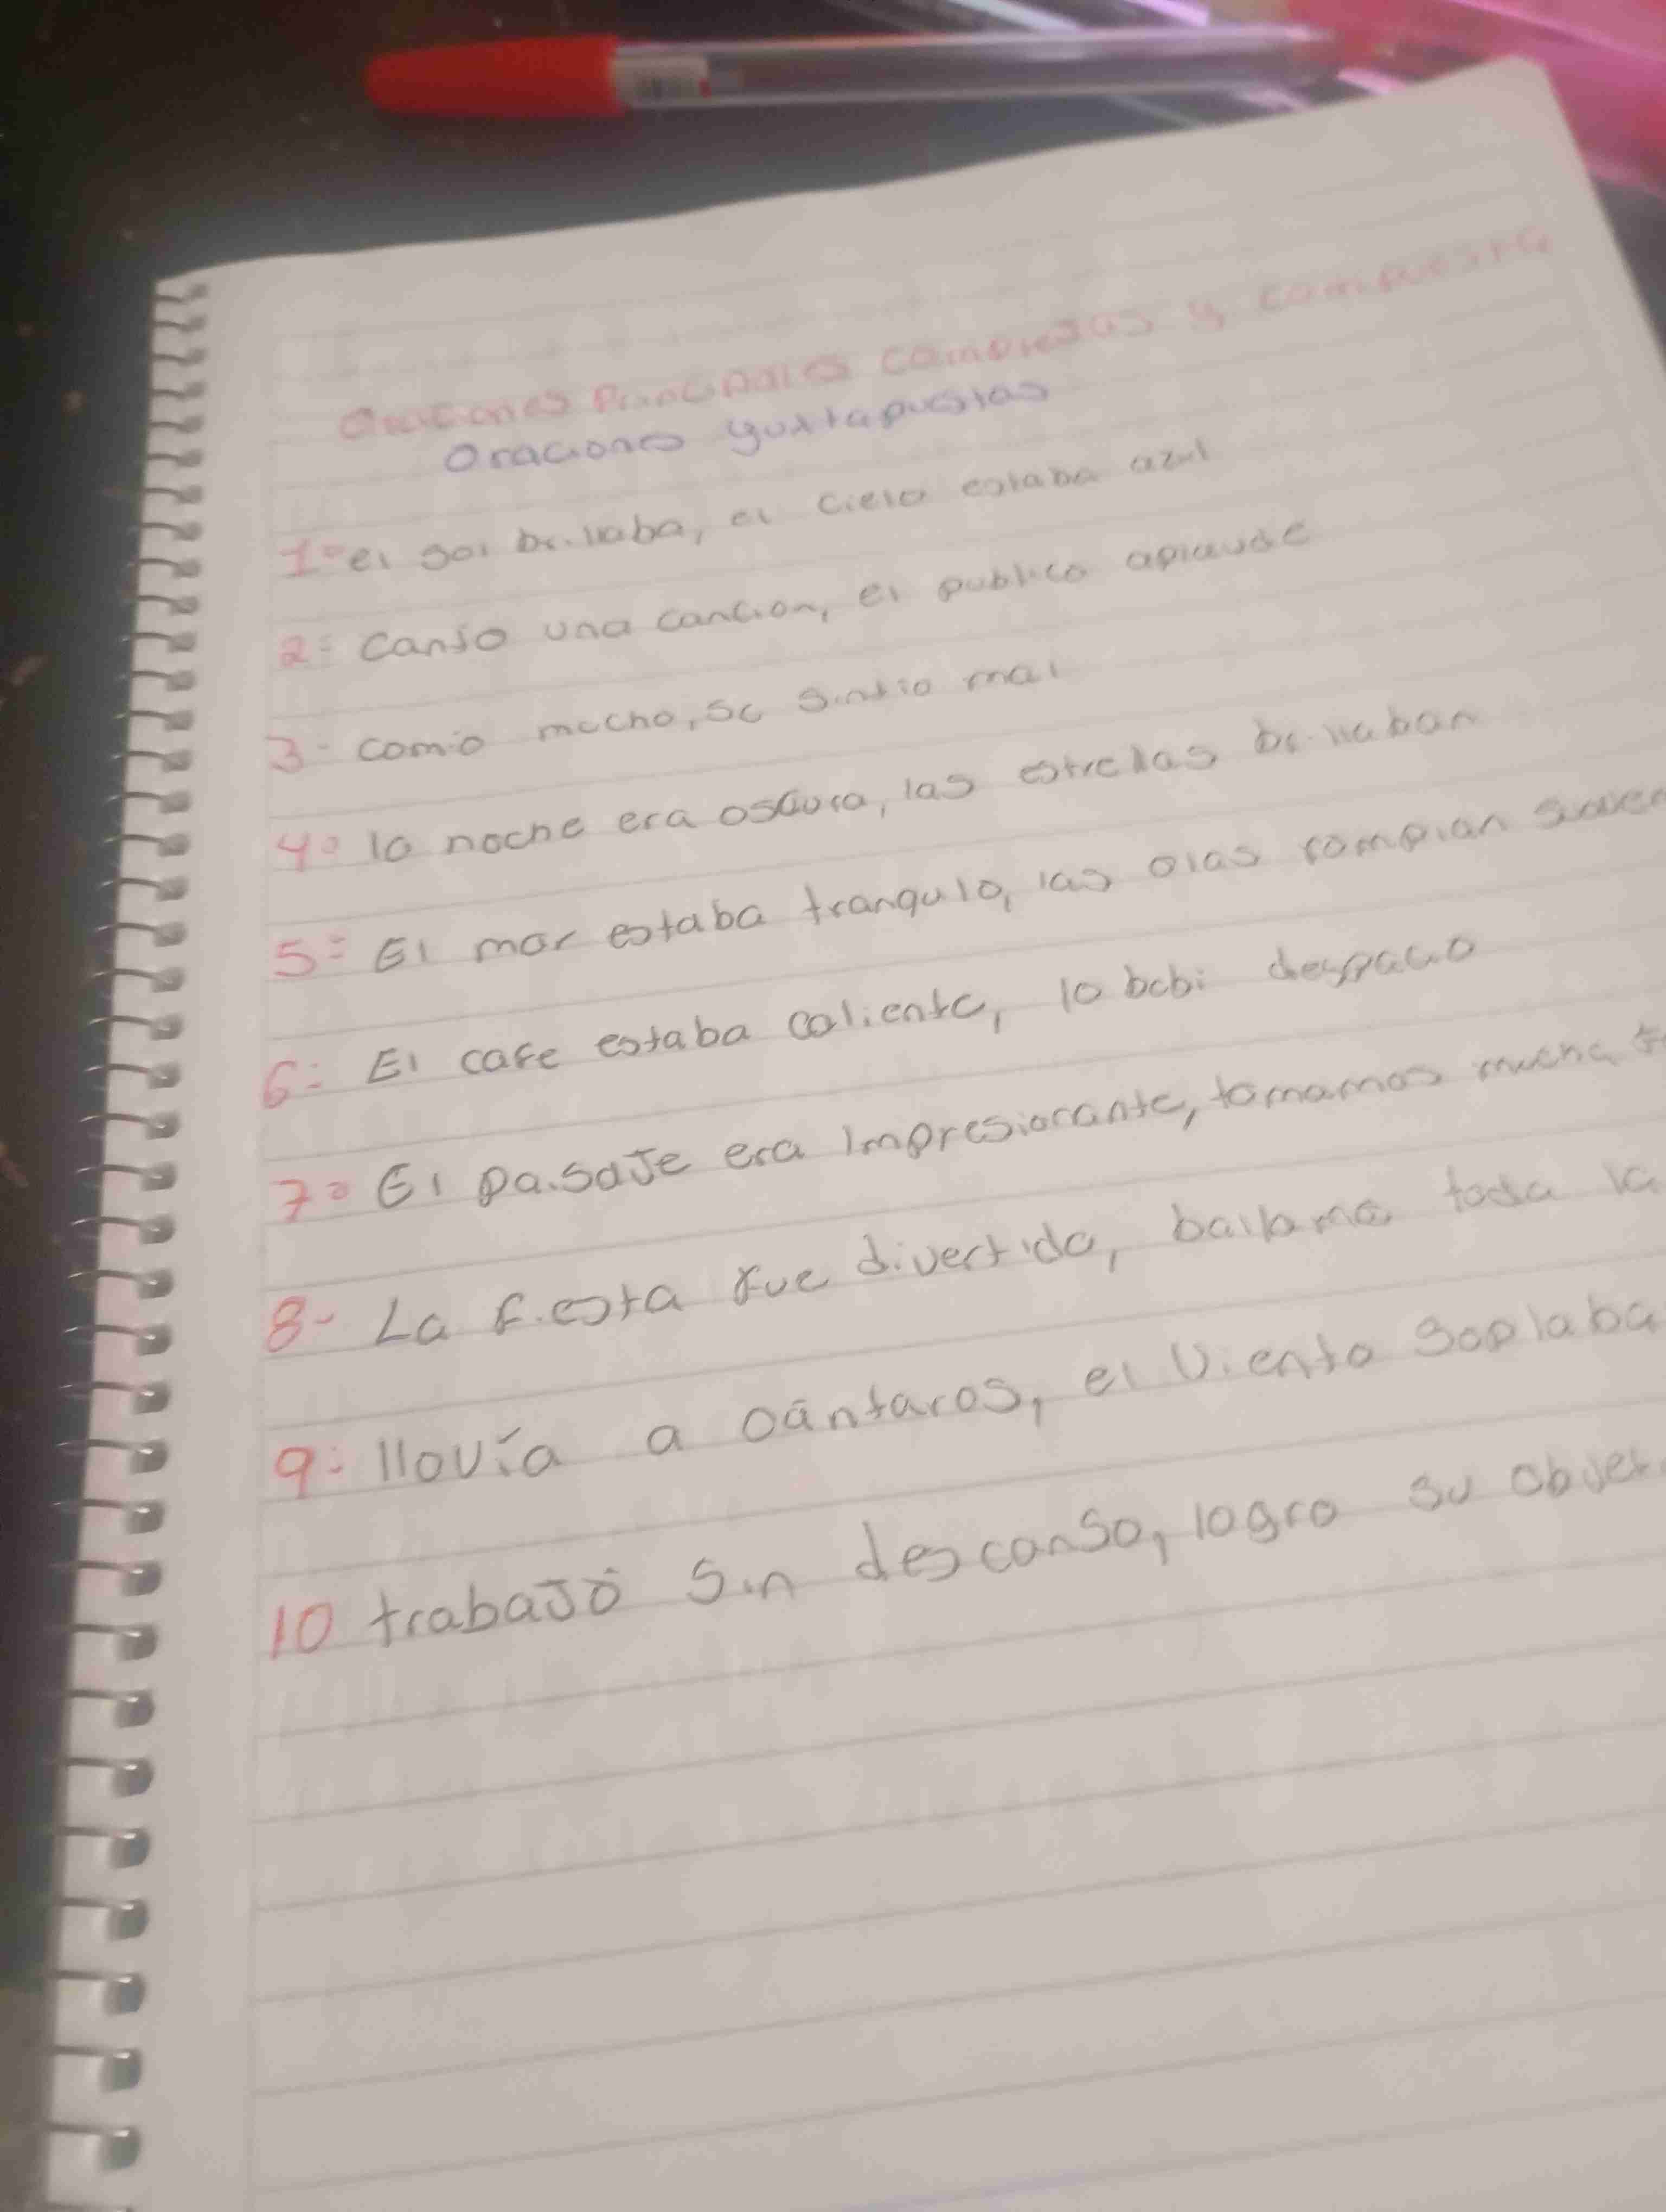 Oraciones Principales complejas y compuesta
Oraciones yuxtapuestas
1= el sol brillaba, el cielo estaba azul
2= Canto una cancion, el publico aplaude
3- comio mucho, se sintio mal
4= la noche era oscura, las estrellas brillaban
5= El mar estaba tranqulo, las olas rompian
6= El cafe estaba caliente, lo bebi despacio
7= El paisaje era impresionante, tomamos mucha
8- La fiesta fue divertida, bailamo toda la
9= llovía a cántaros, el viento soplaba
10 trabajó sin descanso, logro su